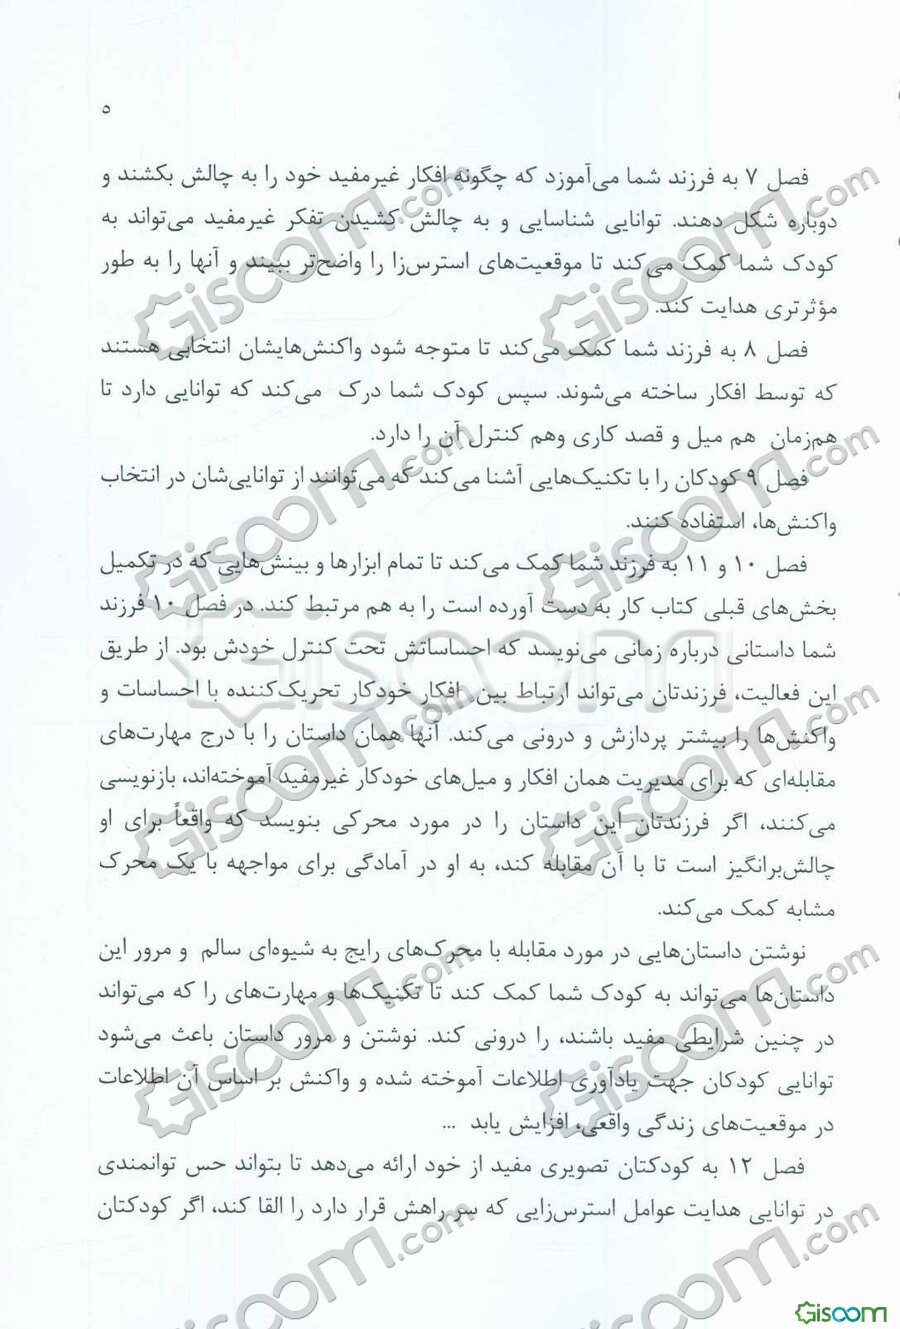 ۵
فصل ۷ به فرزند شما می‌آموزد که چگونه افکار غیرمفید خود را به چالش بکشند و
دوباره شکل دهند. توانایی شناسایی و به چالش کشیدن تفکر غیرمفید می‌تواند به
کودک شما کمک می‌کند تا موقعیت‌های استرس‌زا را واضح‌تر ببیند و آنها را به طور
مؤثرتری هدایت کند.
فصل ۸ به فرزند شما کمک می‌کند تا متوجه شود واکنش‌هایشان انتخابی هستند
که توسط افکار ساخته می‌شوند. سپس کودک شما درک می‌کند که توانایی دارد تا
هم‌زمان هم میل و قصد کاری وهم کنترل آن را دارد.
فصل ۹ کودکان را با تکنیک‌هایی آشنا می‌کند که می‌توانند از توانایی‌شان در انتخاب
واکنش‌ها، استفاده کنند.
فصل ۱۰ و ۱۱ به فرزند شما کمک می‌کند تا تمام ابزارها و بینش‌هایی که در تکمیل
بخش‌های قبلی کتاب کار به دست آورده است را به هم مرتبط کند. در فصل ۱۰ فرزند
شما داستانی درباره زمانی می‌نویسد که احساساتش تحت کنترل خودش بود. از طریق
این فعالیت، فرزندتان می‌تواند ارتباط بین افکار خودکار تحریک‌کننده با احساسات و
واکنش‌ها را بیشتر پردازش و درونی می‌کند. آنها همان داستان را با درج مهارت‌های
مقابله‌ای که برای مدیریت همان افکار و میل‌های خودکار غیرمفید آموخته‌اند، بازنویسی
می‌کنند، اگر فرزندتان این داستان را در مورد محرکی بنویسد که واقعاً برای او
چالش‌برانگیز است تا با آن مقابله کند، به او در آمادگی برای مواجهه با یک محرک
مشابه کمک می‌کند.
نوشتن داستان‌هایی در مورد مقابله با محرک‌های رایج به شیوه‌ای سالم و مرور این
داستان‌ها می‌تواند به کودک شما کمک کند تا تکنیک‌ها و مهارت‌های را که می‌تواند
در چنین شرایطی مفید باشند، را درونی کند. نوشتن و مرور داستان باعث می‌شود
توانایی کودکان جهت یادآوری اطلاعات آموخته شده و واکنش بر اساس آن اطلاعات
در موقعیت‌های زندگی واقعی، افزایش یابد ...
فصل ۱۲ به کودکتان تصویری مفید از خود ارائه می‌دهد تا بتواند حس توانمندی
در توانایی هدایت عوامل استرس‌زایی که سر راهش قرار دارد را القا کند، اگر کودکتان
Giscom
Giscom.com